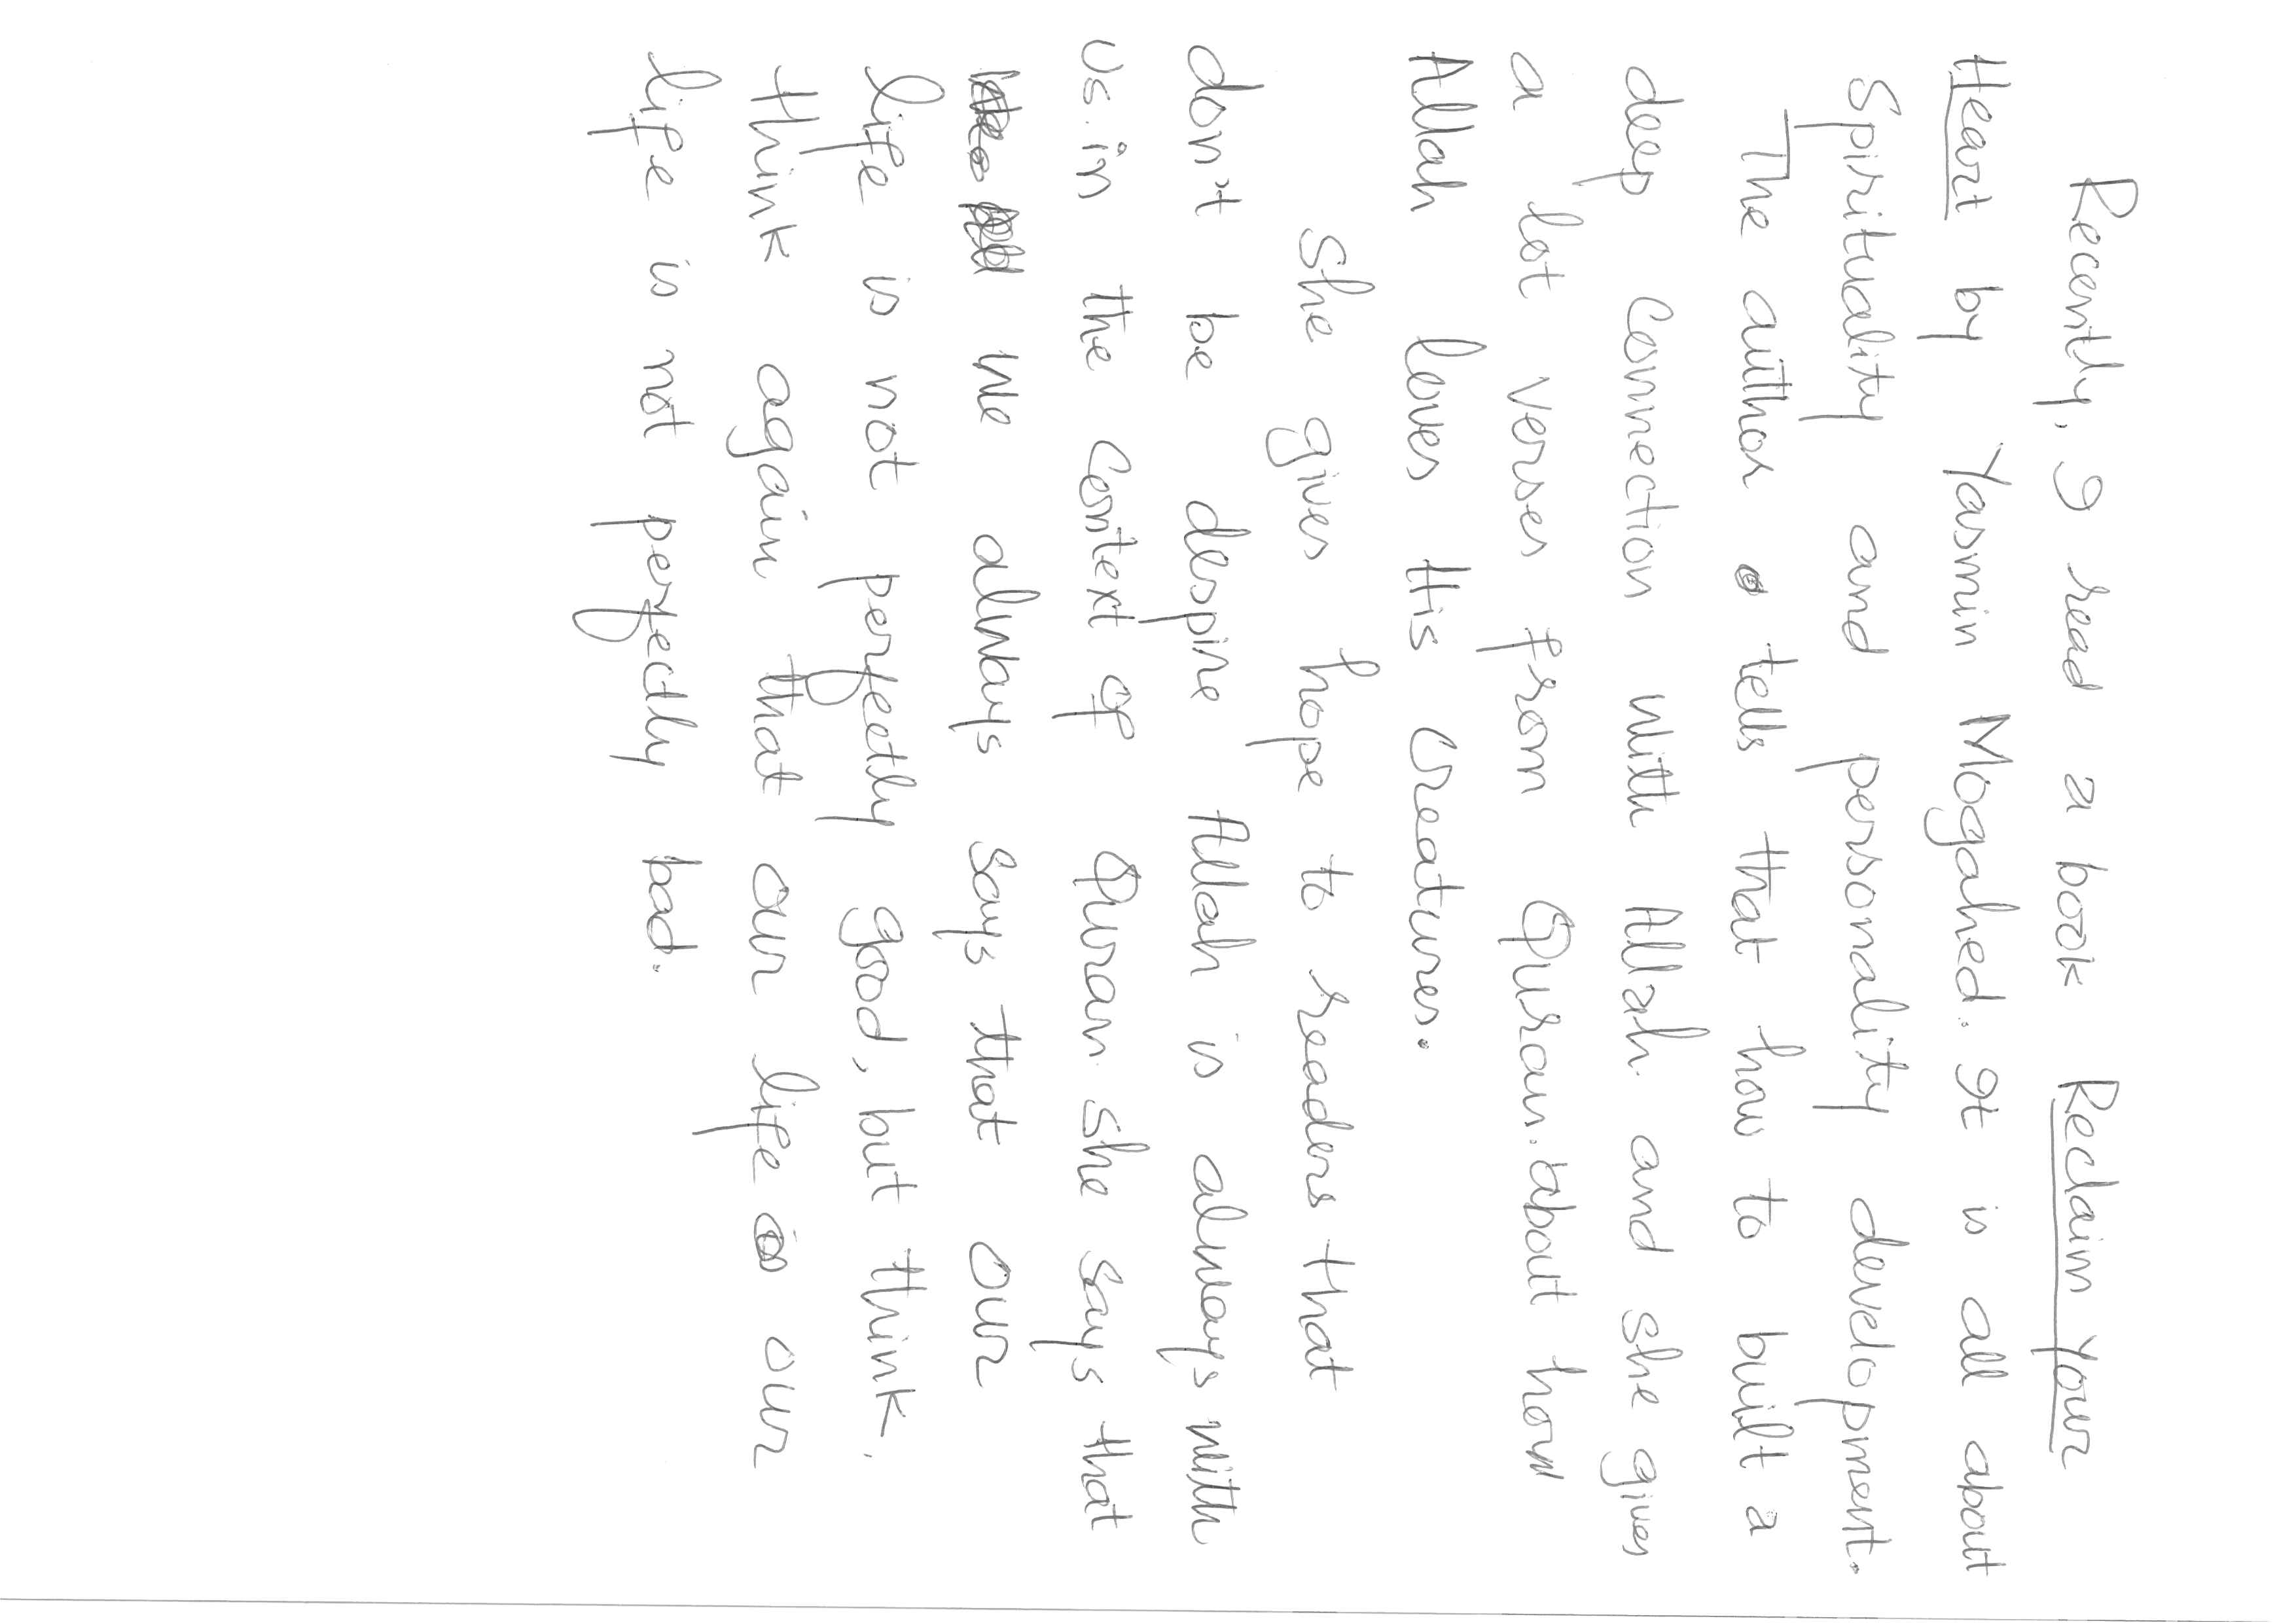 Recently, I read a book Reclaim your
Heart by Yasmin Mogahed. It is all about
Spirituality and personality development.
The author tells that how to built a
deep connection with Allah. and she gives
a lot verses from Quran. about how
Allah loves His creatures.
She gives hope to readers that
don't be despire Allah is always with
us. in the context of Quran she says that
we always says that our
life is not perfectly good, but think,
think again that our life our
life is not perfectly bad.